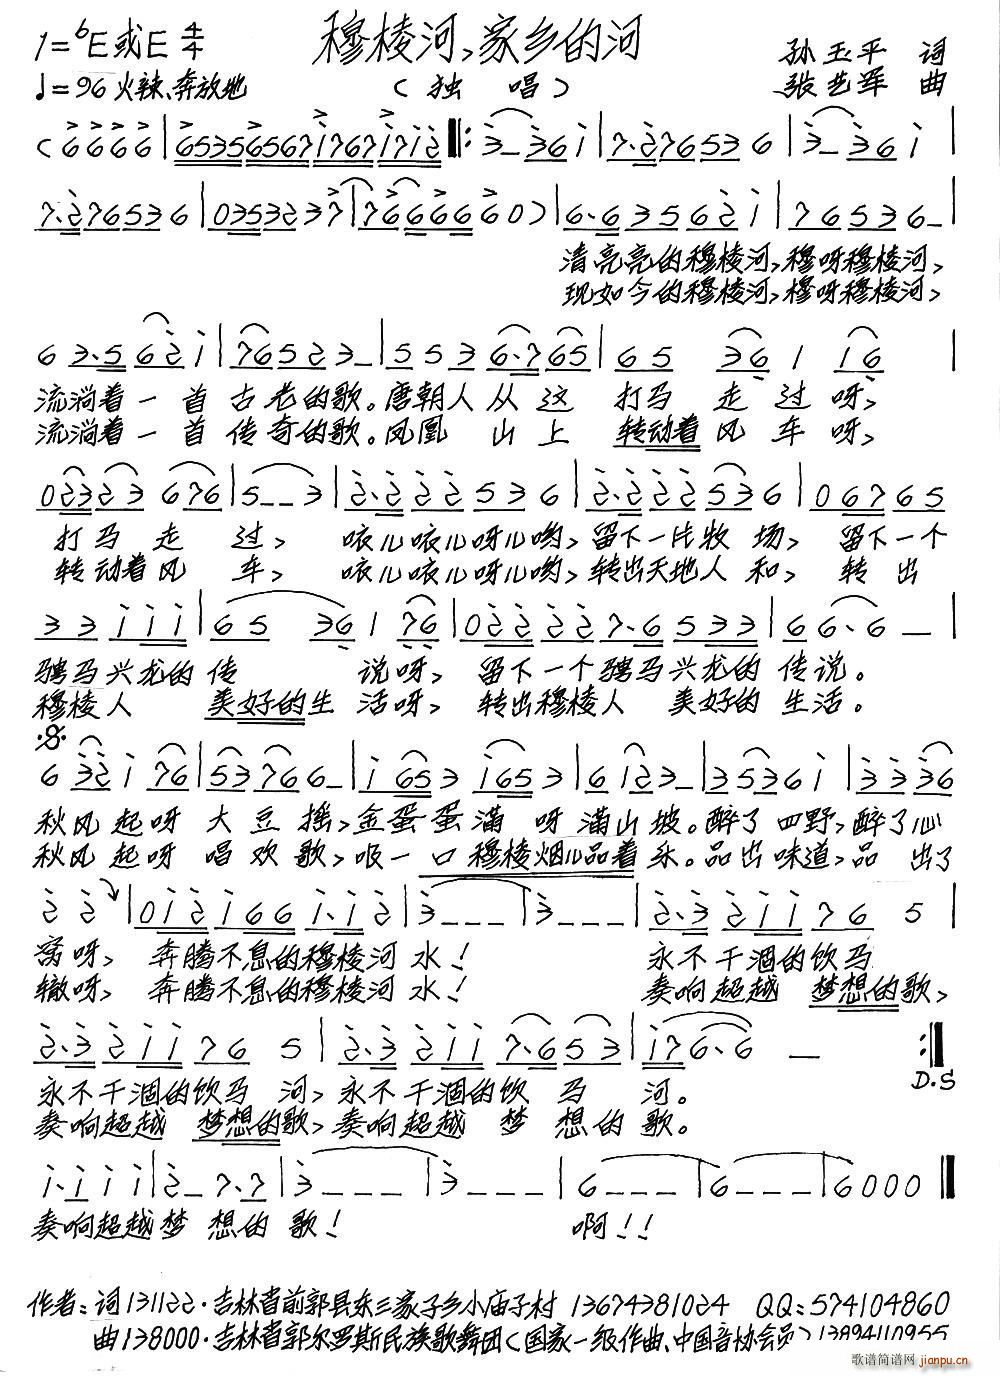 穆棱河，家乡的河
1=♭E或E 4/4
♩=96 火辣、奔放地
（独 唱）
孙玉平 词
张艺军 曲
清亮亮的穆棱河，穆呀穆棱河，
现如今的穆棱河，穆呀穆棱河，
流淌着一首古老的歌。唐朝人从这 打马走过呀，
流淌着一首传奇的歌。凤凰山上 转动着风车呀，
打马走过， 咴儿咴儿呀儿哟，留下一片牧场， 留下一个
转动着风车， 咴儿咴儿呀儿哟，转出天地人和， 转出
骋马兴龙的传 说呀， 留下一个骋马兴龙的传说。
穆棱人 美好的生活呀， 转出穆棱人 美好的生活。
秋风起呀大豆摇，金蛋蛋满呀满山坡。醉了四野，醉了心
秋风起呀唱欢歌，吸一口穆棱烟儿品着乐。品出味道，品出了
窝呀， 奔腾不息的穆棱河水！ 永不干涸的饮马
辙呀， 奔腾不息的穆棱河水！ 奏响超越梦想的歌，
永不干涸的饮马河，永不干涸的饮马河。
奏响超越梦想的歌，奏响超越梦想的歌。
D.S
奏响超越梦想的歌！ 啊！！
作者：词131122·吉林省前郭县东三家子乡小庙子村 13674381024 QQ：574104860
曲138000·吉林省郭尔罗斯民族歌舞团（国家一级作曲、中国音协会员）13894110955
歌谱简谱网 jianpu.cn